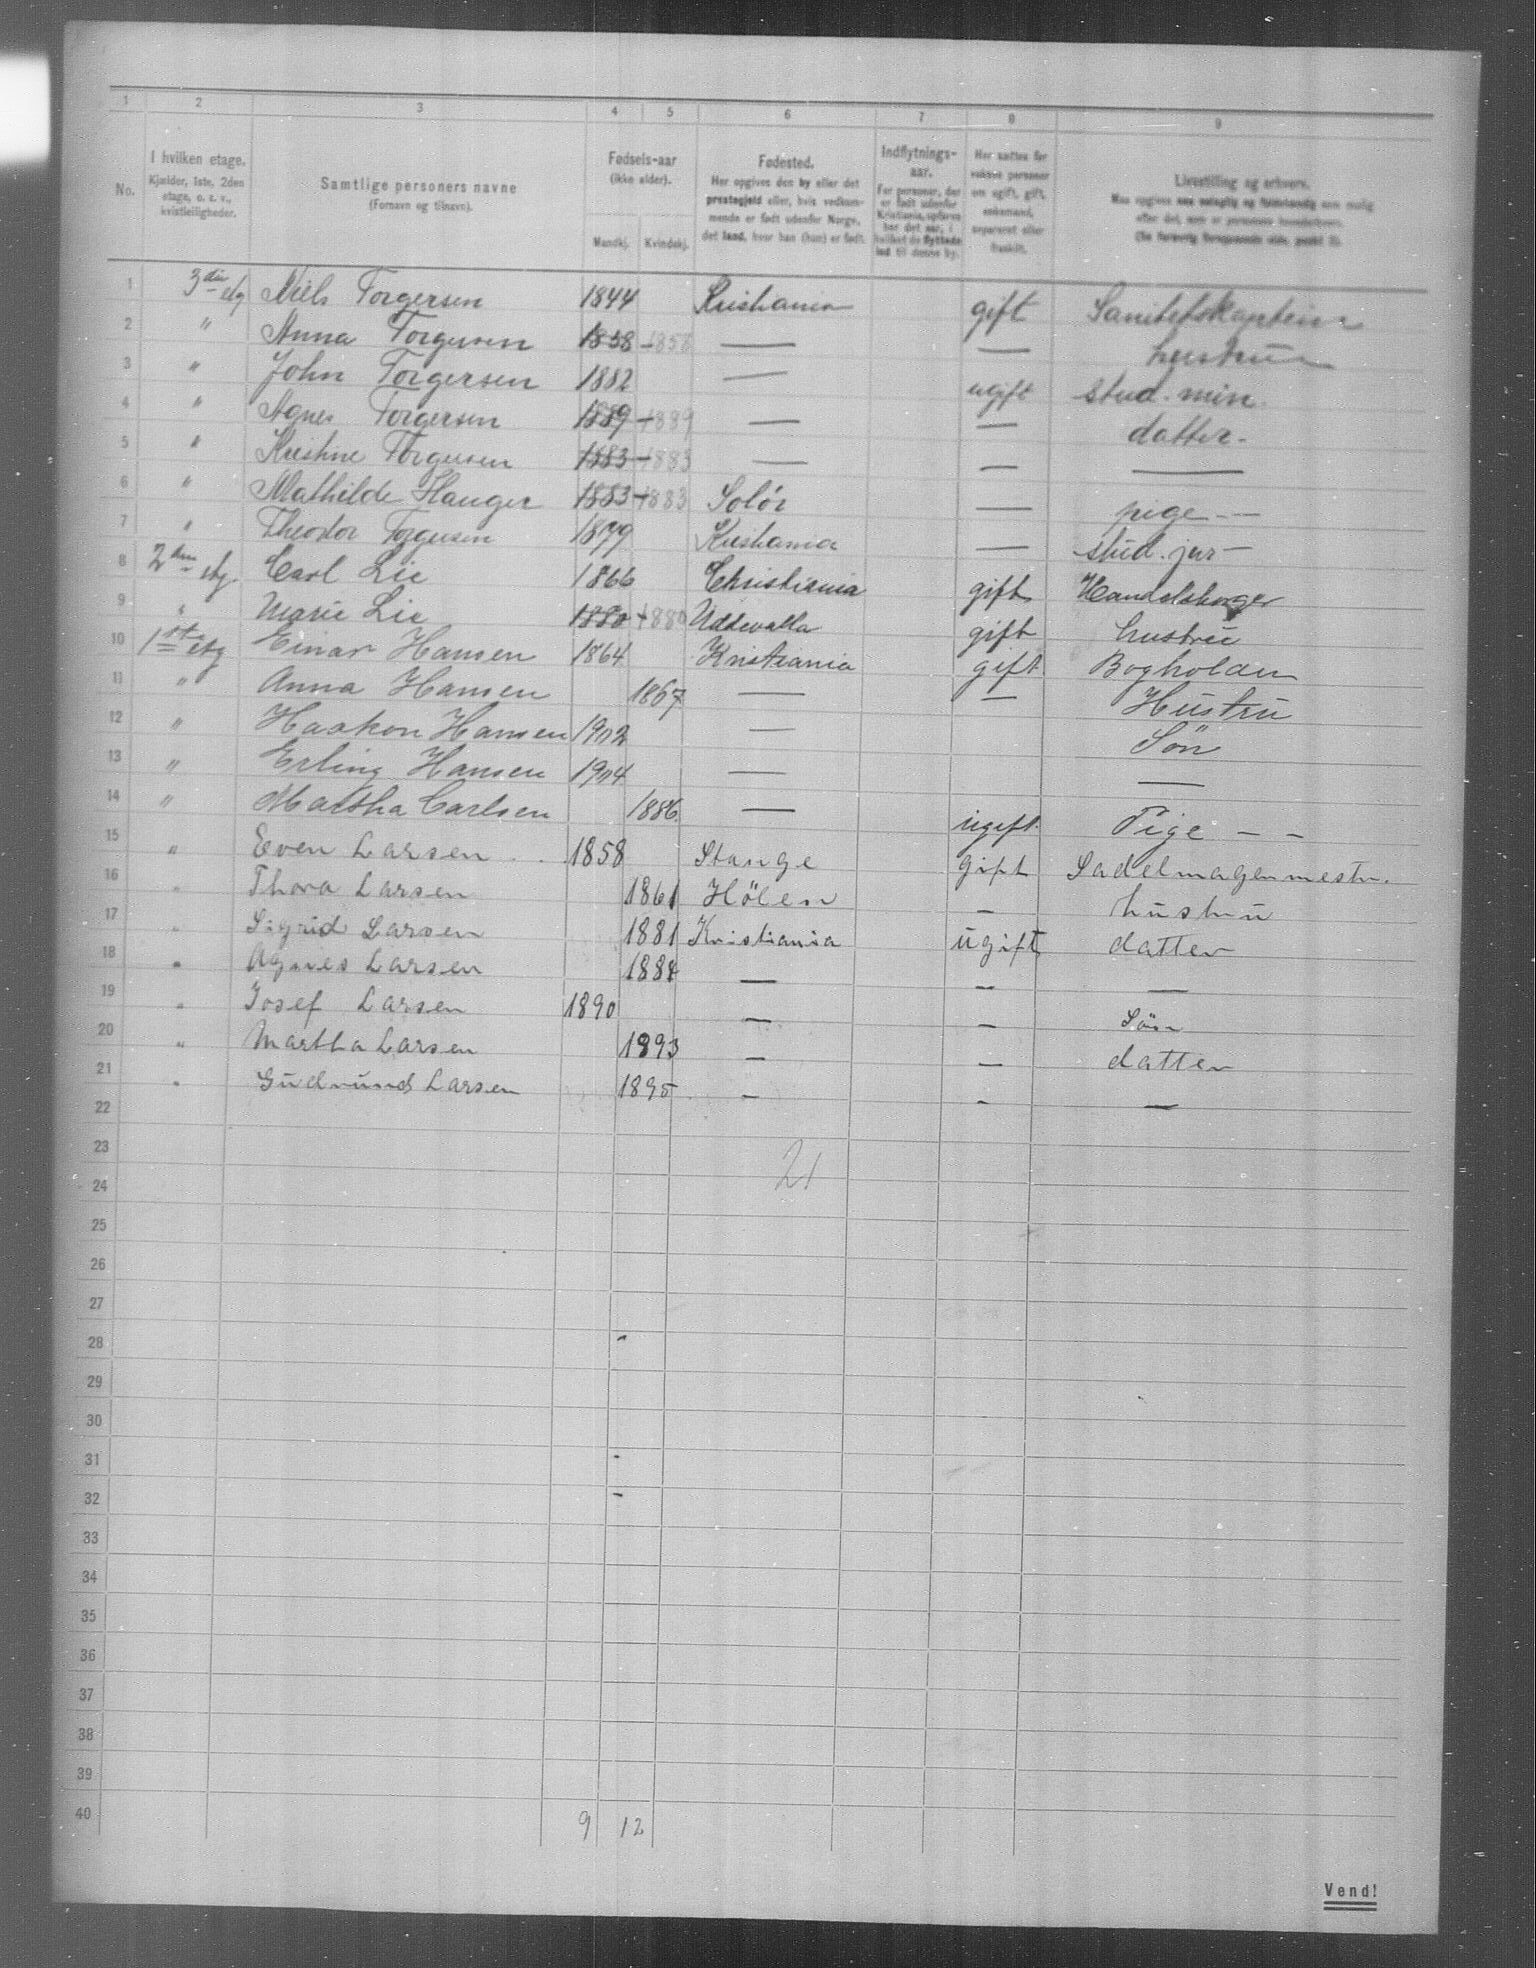 1 2 3 4 5 6 7 8 9
No. I hvilken etage. Kjælder, 1ste, 2den etage, o. s. v., kvistleiligheder. Samtlige personers navne (Fornavn og tilnavn). Fødsels-aar (ikke alder). Mandkj. Kvindekj. Fødested. Her opgives den by eller det prestegjeld eller, hvis vedkommende er født udenfor Norge, det land, hvor han (hun) er født. Indflytnings-aar. For personer, der er født udenfor Kristiania, opføres her det aar, i hvilket de flyttede ind til denne by. Her sættes for voksne personer om ugift, gift, enkemand, separeret eller fraskilt. Livsstilling og erhverv.
1 3die etg Niels Torgersen 1844 Kristiania gift Sanitetskaptein
2 " Anna Torgersen 1858 – 1858 — — hustru
3 " John Torgersen 1882 — ugift stud. min.
4 " Agnes Torgersen 1889 – 1889 — — datter -
5 " Kristine Torgersen 1883 – 1883 — — —
6 " Mathilde Hauger 1883 – 1883 Solör — pige - —
7 " Theodor Torgersen 1879 Kristiania — stud. jur -
8 2den etg. Carl Lie 1866 Christiania gift Handelsborger
9 " Marie Lie 1880 – 1880 Uddevalla gift hustru
10 1ste etg Einar Hansen 1864 Kristiania gift Bogholder
11 " Anna Hansen 1867 — — Hustru
12 " Haakon Hansen 1902 — Sön
13 " Erling Hansen 1904 — —
14 " Martha Carlsen 1886. — ugift. Pige — —
15 " Even Larsen 1858 Stange gift Sadelmagermestr.
16 " Thora Larsen 1861 Hölen — hustru
17 " Sigrid Larsen 1881 Kristiania ugift datter
18 " Agnes Larsen 1884 — — —
19 " Josef Larsen 1890 — — Sön
20 " Martha Larsen 1893 — — datter
21 " Gudrund Larsen 1895 — — —
22
23
21
24
25
26
27
28
29
30
31
32
33
34
35
36
37
38
39
40 9 12
Vend!